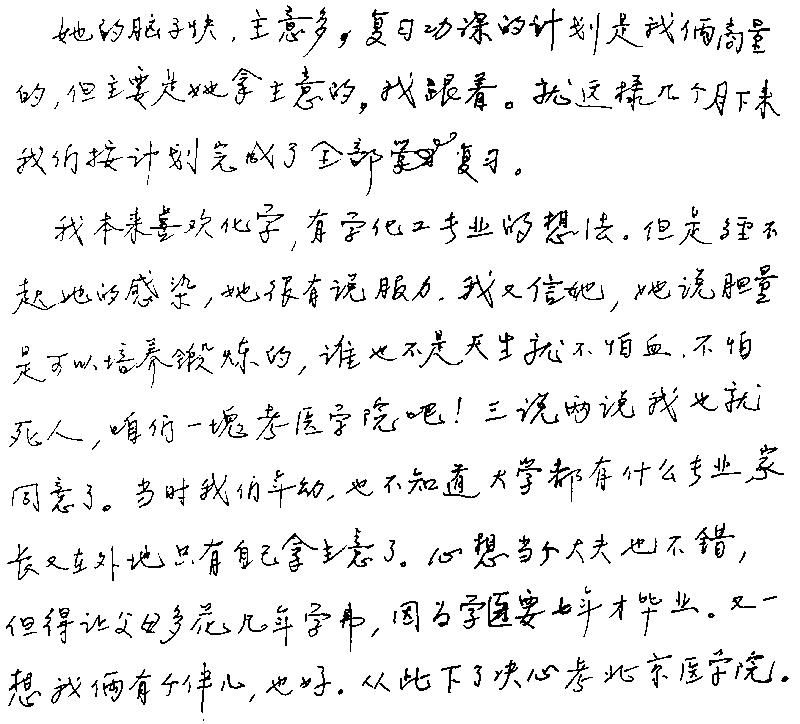 她的脑子快,主意多,复习功课的计划是我俩商量
的,但主要是她拿主意的,我跟着。就这样几个月下来
我们按计划完成了全部复习。
我本来喜欢化学,有学化工专业的想法。但是经不
起她的感染,她很有说服力.我又信她,她说胆量
是可以培养锻炼的,谁也不是天生就不怕血.不怕
死人,咱们一块考医学院吧!三说两说我也就
同意了。当时我们年幼,也不知道大学都有什么专业家
长又在外地只有自己拿主意了。心想当个大夫也不错,
但得让父母多花几年学费,因为学医要七年才毕业。又一
想我俩有个伴儿,也好.从此下了决心考北京医学院.